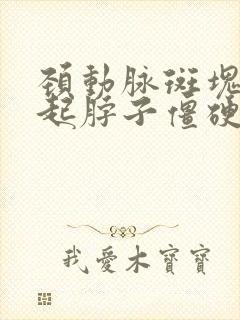 頚動脉斑塊
起脖子僵硬
我愛木寶寶